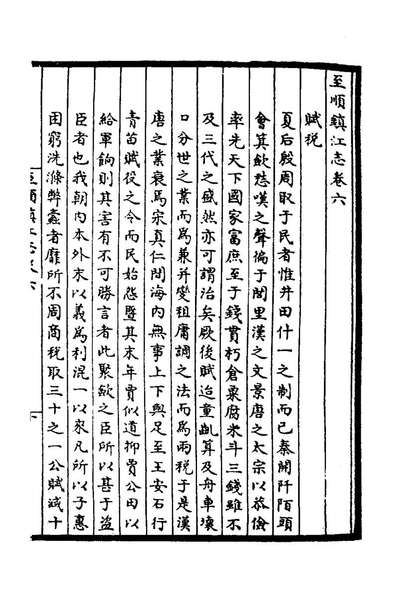 至順鎮江志卷六
賦税
夏后殷周取于民者惟井田什一之制而已秦開阡陌頭
會箕歛愁嘆之聲徧于閭里漢之文景唐之太宗以恭儉
率先天下國家富庶至于錢貫朽倉粟腐米斗三錢雖不
及三代之盛然亦可謂治矣厥後賦迨童齓算及舟車壞
口分世之業而爲兼并變租庸調之法而爲两税于是漢
唐之業衰焉宋真仁間海内無事上下與足至王安石行
青苗賦役之令而民始怨暨其末年賈似道抑買公田以
給軍餉則其害有不可勝言者此聚歛之臣所以甚于盗
臣者也我朝内本外末以義爲利混一以來凡所以子惠
困窮洗滌弊蠹者靡所不周商税取三十之一公賦减十
至順鎮江志卷六